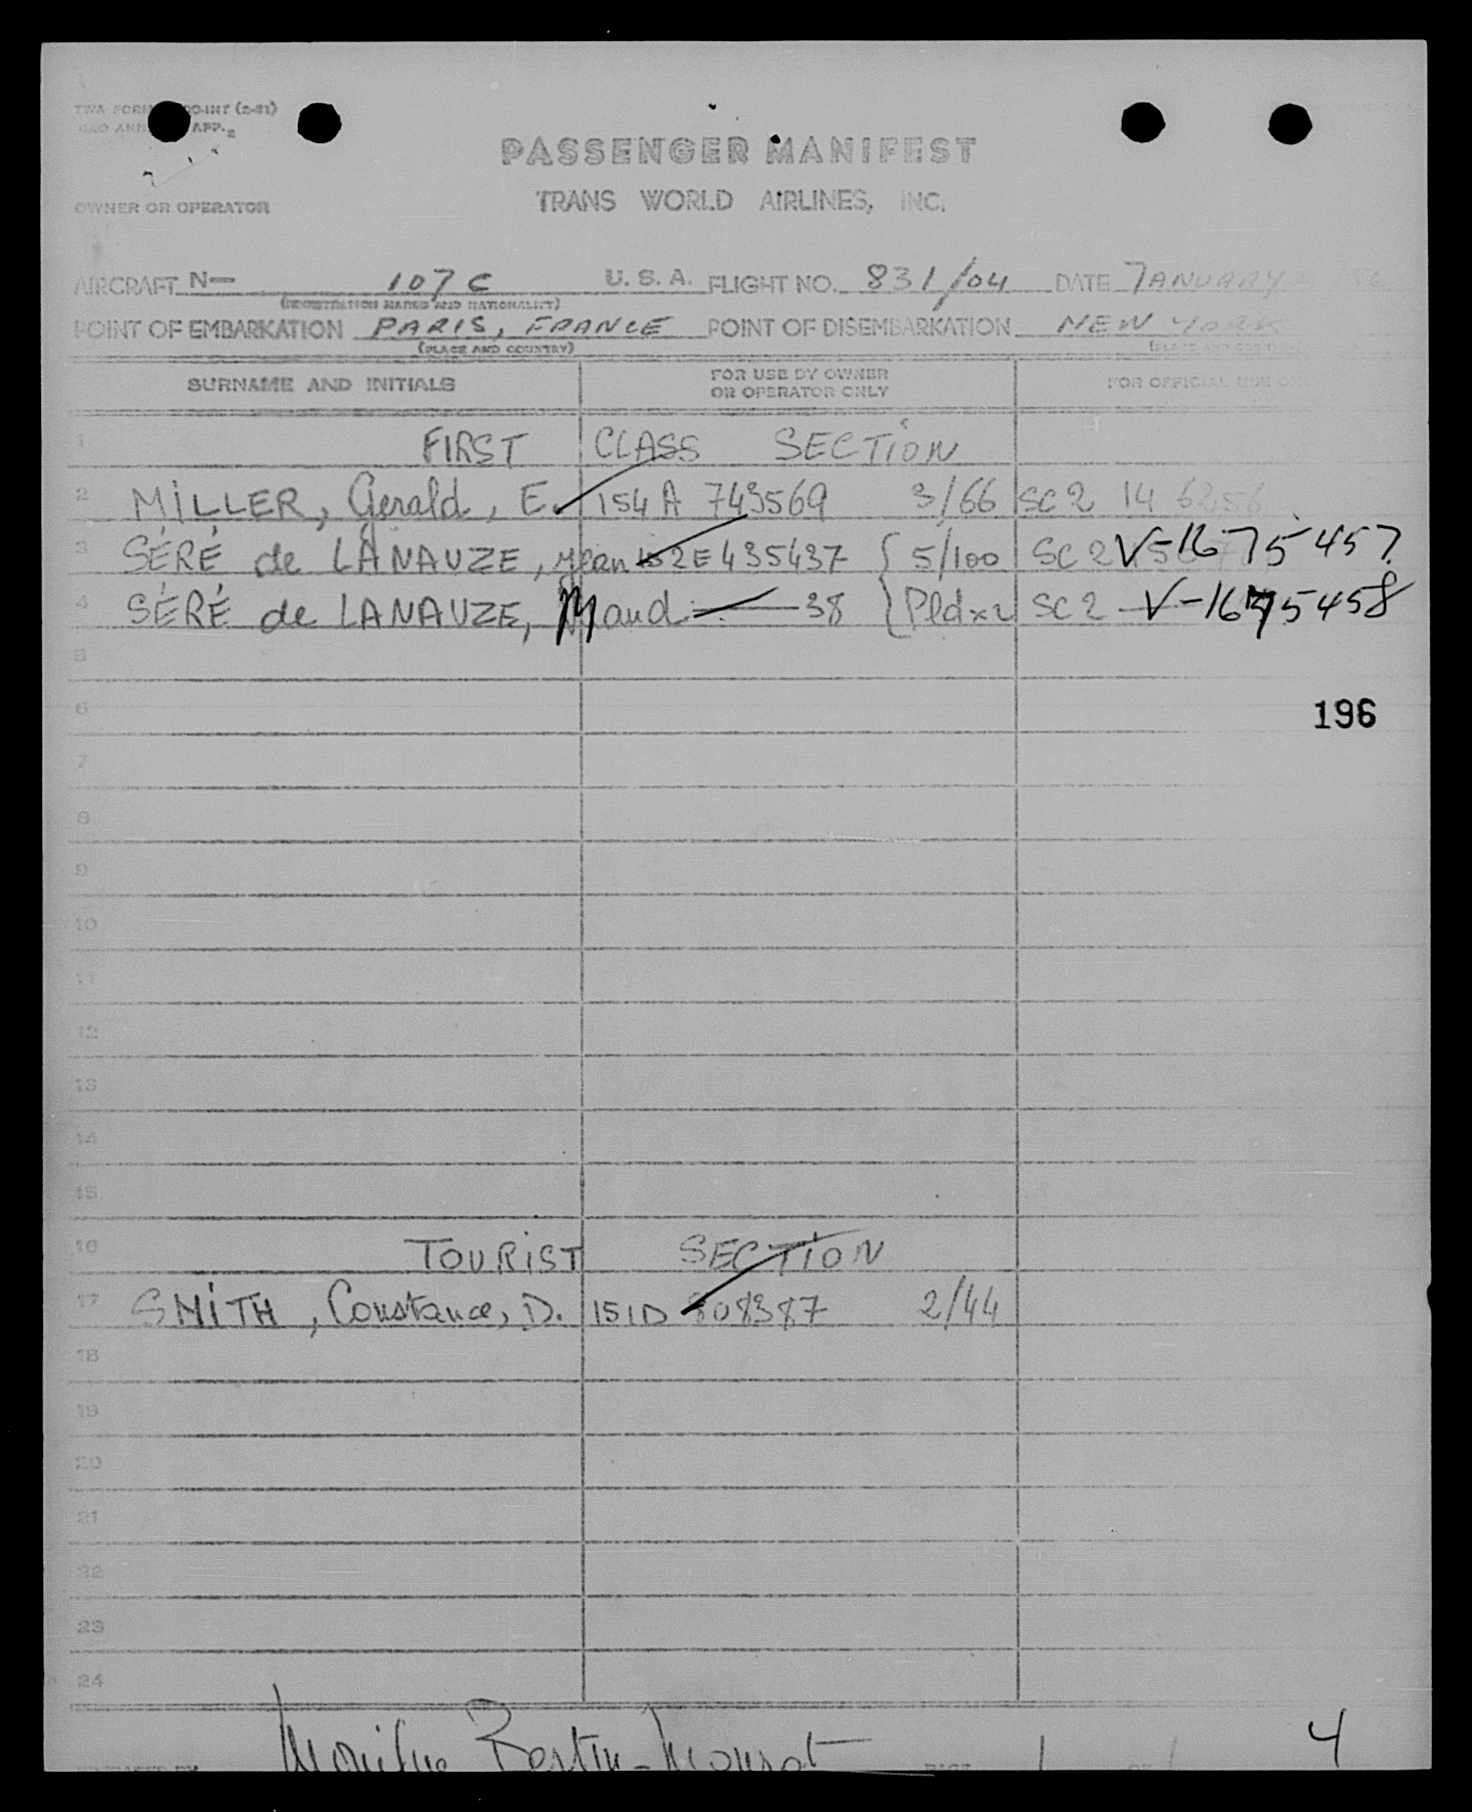 (2-51)
APP. 2
PASSENGER MANIFEST
OWNER OR OPERATOR TRANS WORLD AIRLINES, INC.
AIRCRAFT N— 107 C U. S. A. FLIGHT NO. 831/04 DATE JANUARY
(REGISTRATION MARKS AND NATIONALITY)
POINT OF EMBARKATION PARIS, FRANCE POINT OF DISEMBARKATION NEW YORK
(PLACE AND COUNTRY)
SURNAME AND INITIALS FOR USE BY OWNER OR OPERATOR ONLY FOR OFFICIAL USE
1 FIRST CLASS SECTION
2 MILLER, Gerald, E. 154 A 743569 3/66 SC 2 14
3 SÉRÉ de LANAUZE, Jean 152E 435437 { 5/100 SC 2 V-1675457
4 SÉRÉ de LANAUZE, Maud — 38 { Pldx2 SC 2 V-1675458
5
6 196
7
8
9
10
11
12
13
14
15
16 TOURIST SECTION
17 SMITH, Constance, D. 151D 808387 2/44
18
19
20
21
22
23
24
4